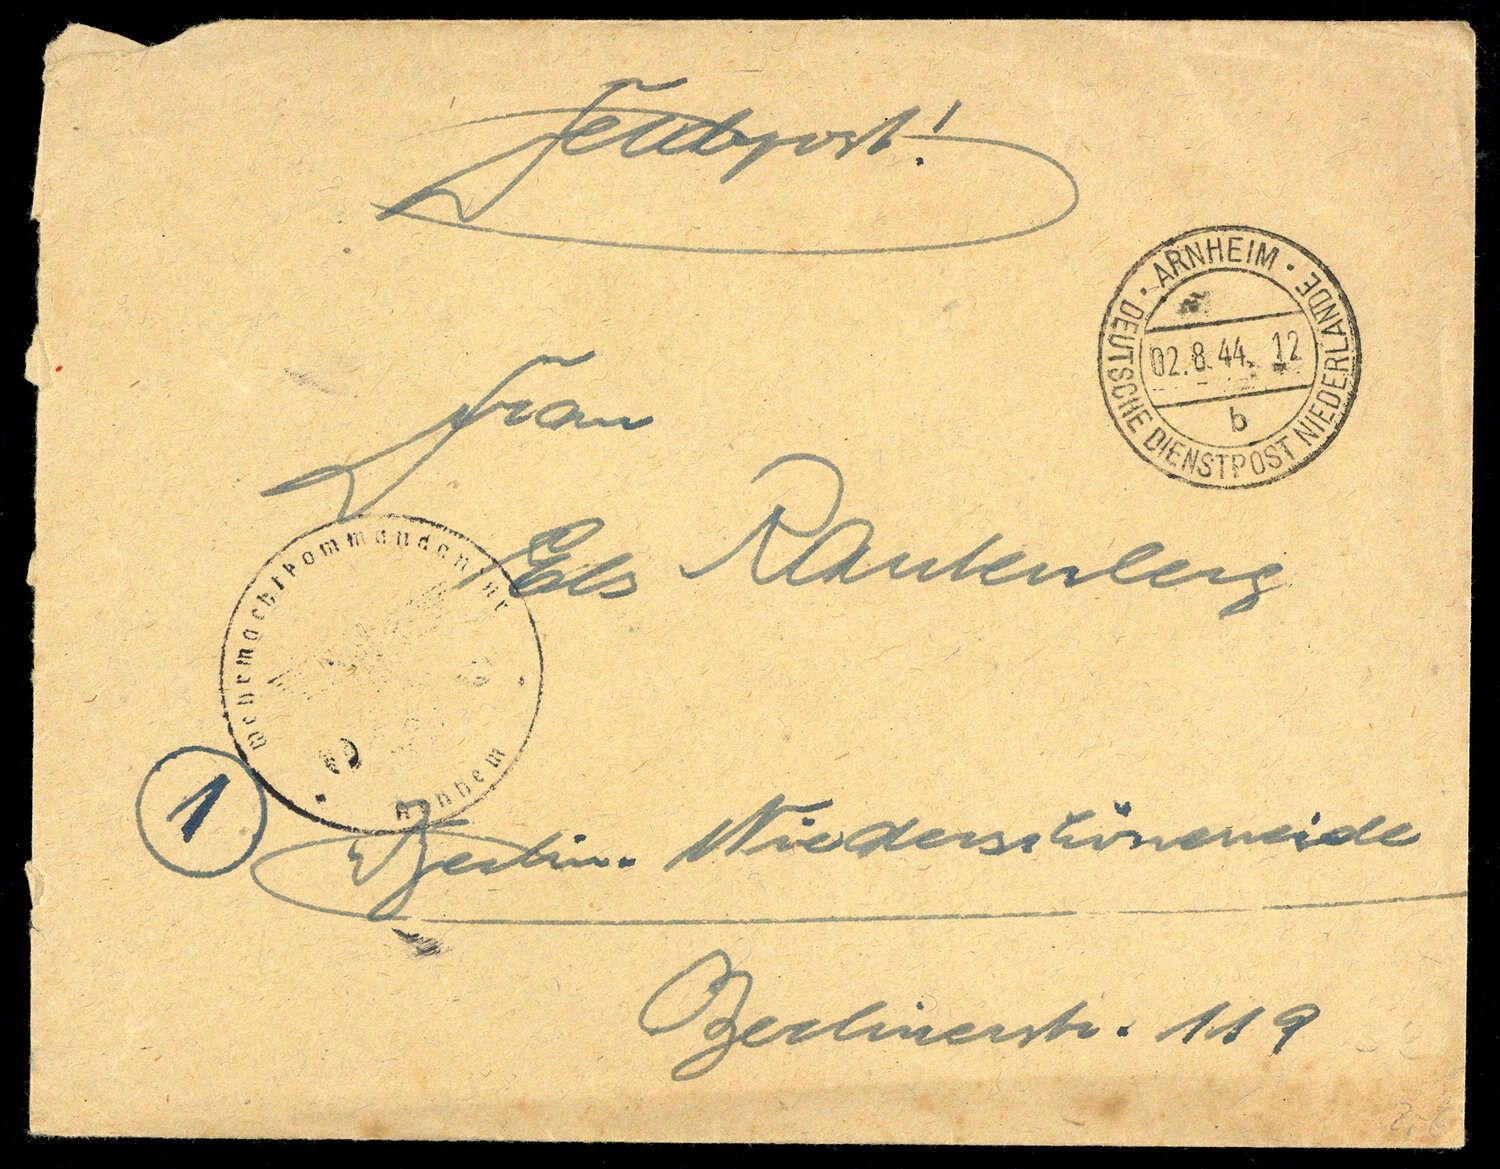 Feldpost!
ARNHEIM
DEUTSCHE DIENSTPOST NIEDERLANDE
02.8.44. 12
b
Frau
Els Rautenberg
Wehrmachtkommandantur
Arnhem
1
Berlin. Niederschöneweide
Berlinerstr. 119